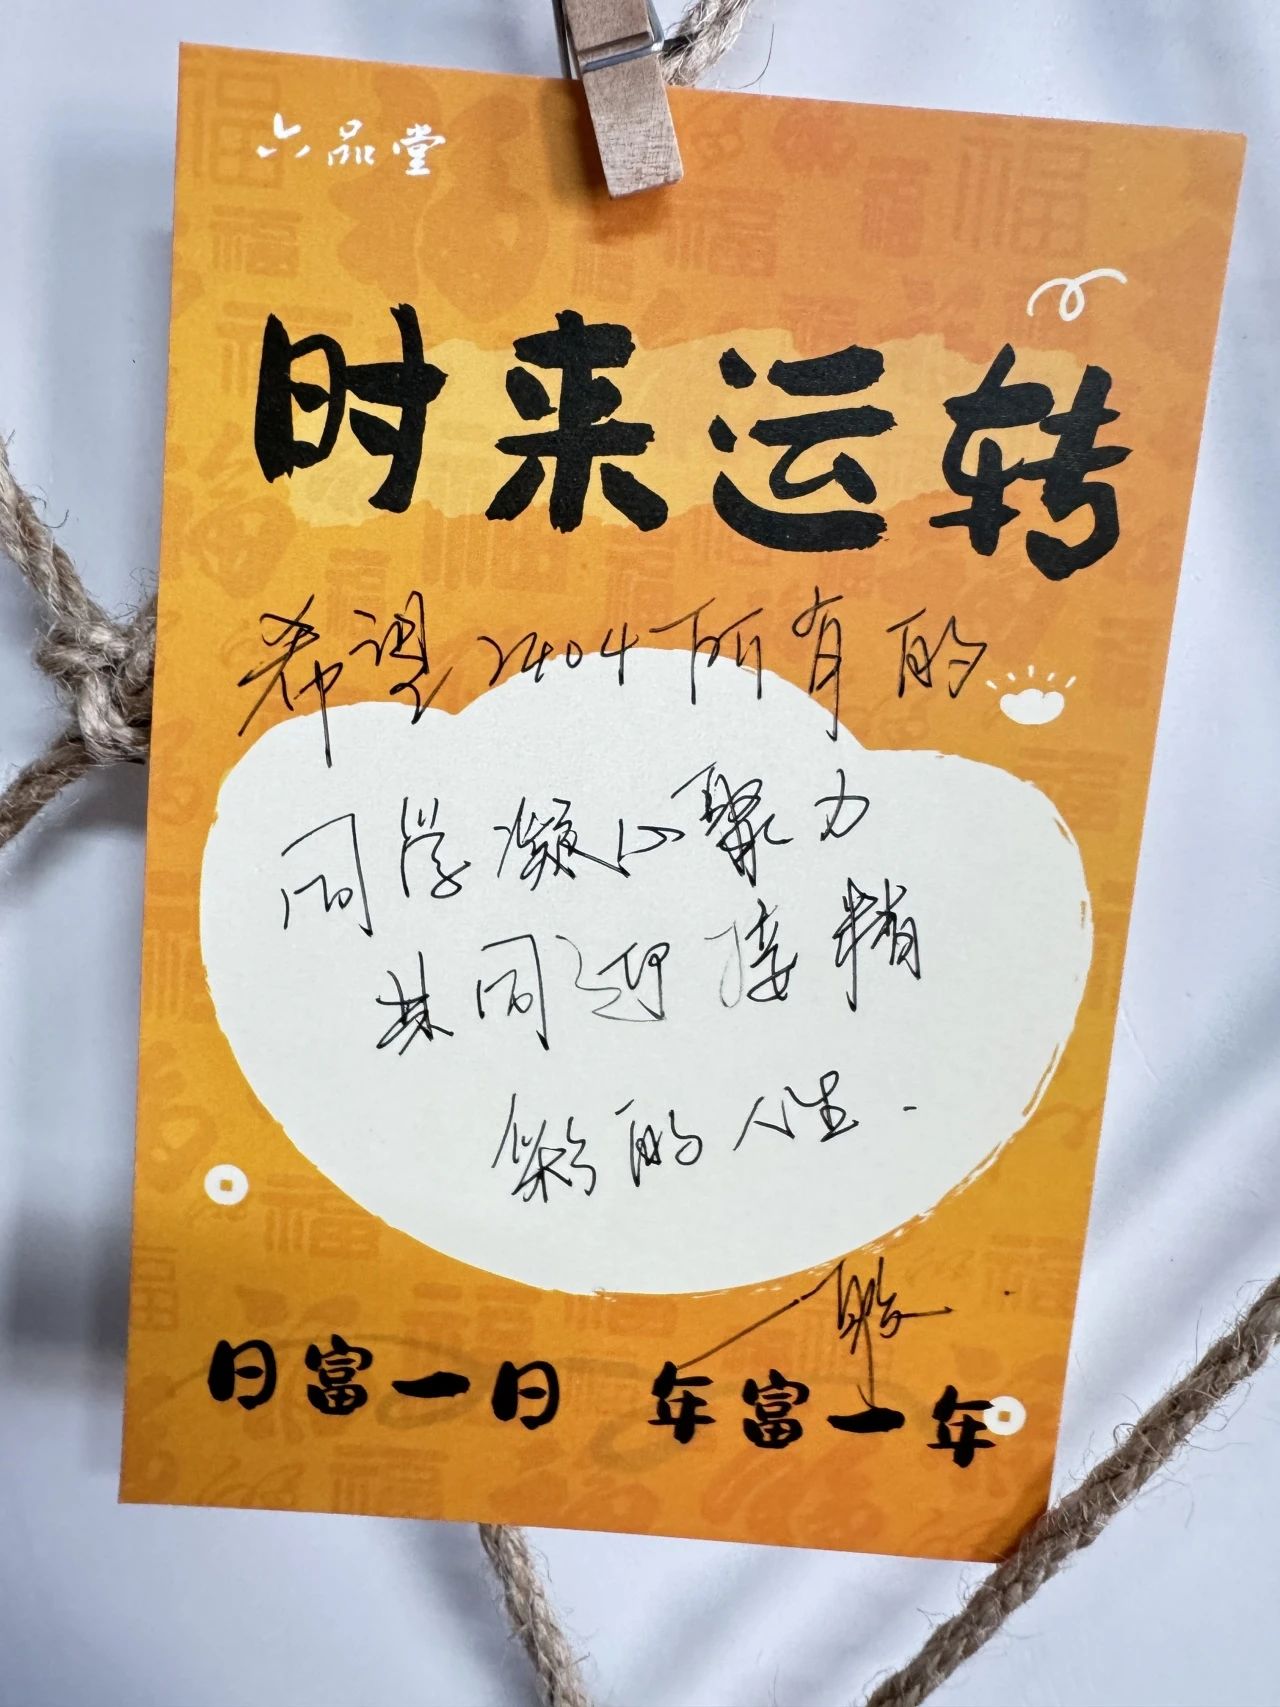 六品堂
时来运转
希望2404所有的
同学凝心聚力
共同迎接精
彩的人生.
日富一日 年富一年